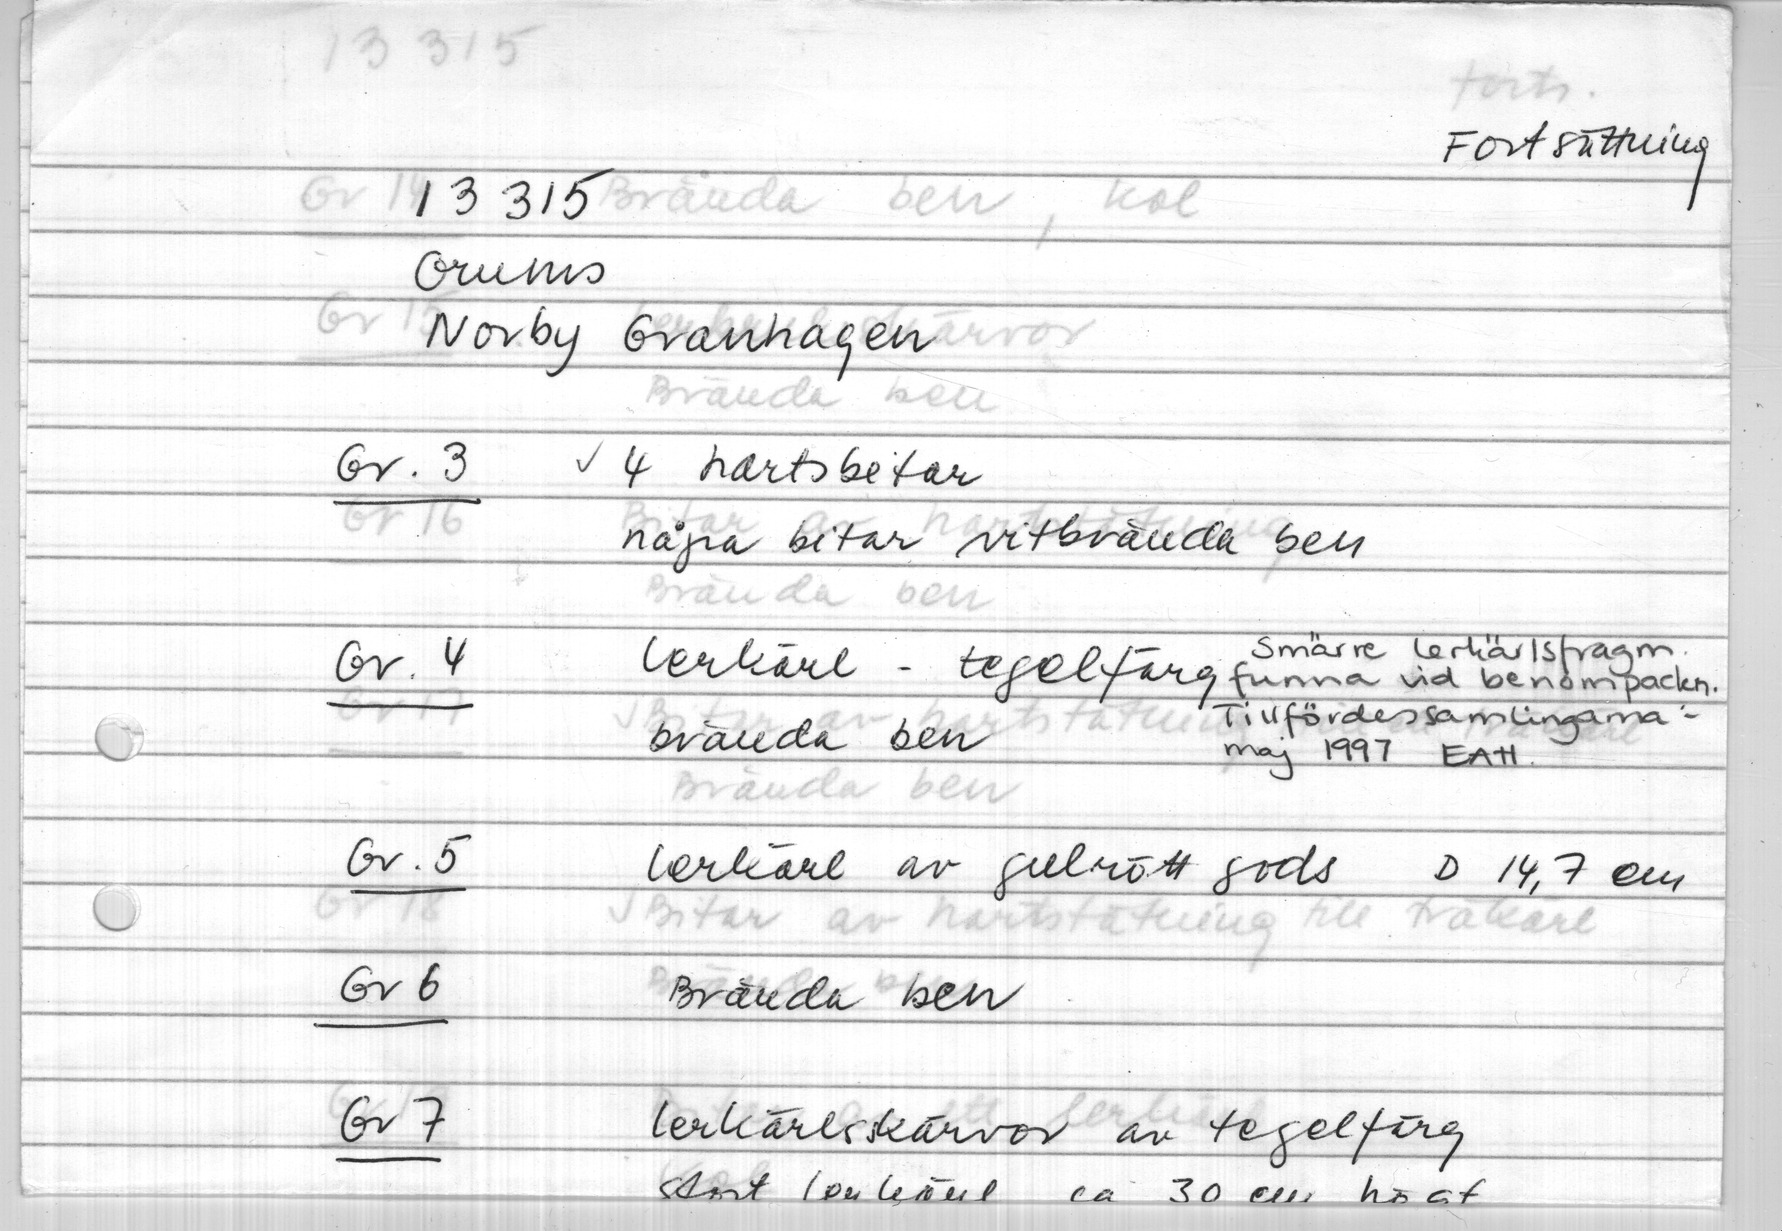 Fortsättning
13 315
Grums
Norby Granhagen
Gr. 3 ✓ 4 hartsbitar
några bitar vitbrända ben
Gr. 4 lerkärl - tegelfärg
brända ben
Smärre lerkärlsfragm.
funna vid benompackn.
Tillfördes samlingarna -
maj 1997 EAH.
Gr. 5 lerkärl av gulrött gods D 14,7 cm
Gr 6 Brända ben
Gr 7 lerkärlsskärvor av tegelfärg
stort lerkärl ca 30 cm högt